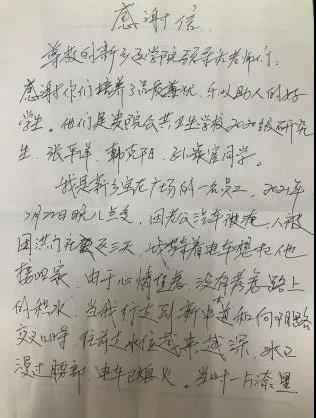 感谢信
尊敬的新乡医学院领导和老师们：
感谢你们培养了品质善优，乐以助人的好
学生。他们是贵院公共卫生学校2020级研究
生，张平详，韩克阳，孙崇宦同学。
我是新乡宝龙广场的一名员工，2021年
7月22日晚八点多，因老公汽车被淹，人被
困洪门已三天，我带着电车想把他
接回家，由于心情焦急，没有考虑路上
的积水，当我行走到新中道和向阳路
交叉口时，往前走水位越来越深，水已
漫过腰部，电车已熄火。当时一片漆黑